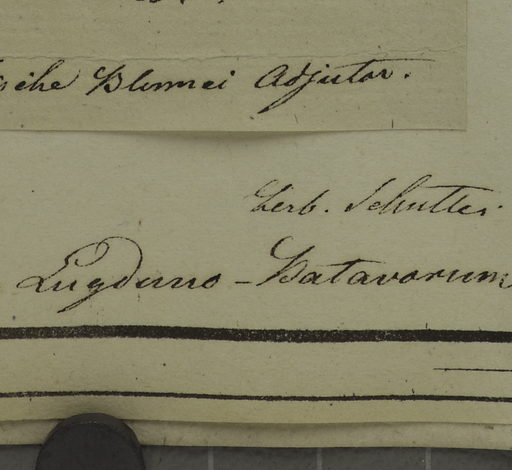 Blumei Adjutor.
Herb. Schultes.
Lugduno-Batavorum